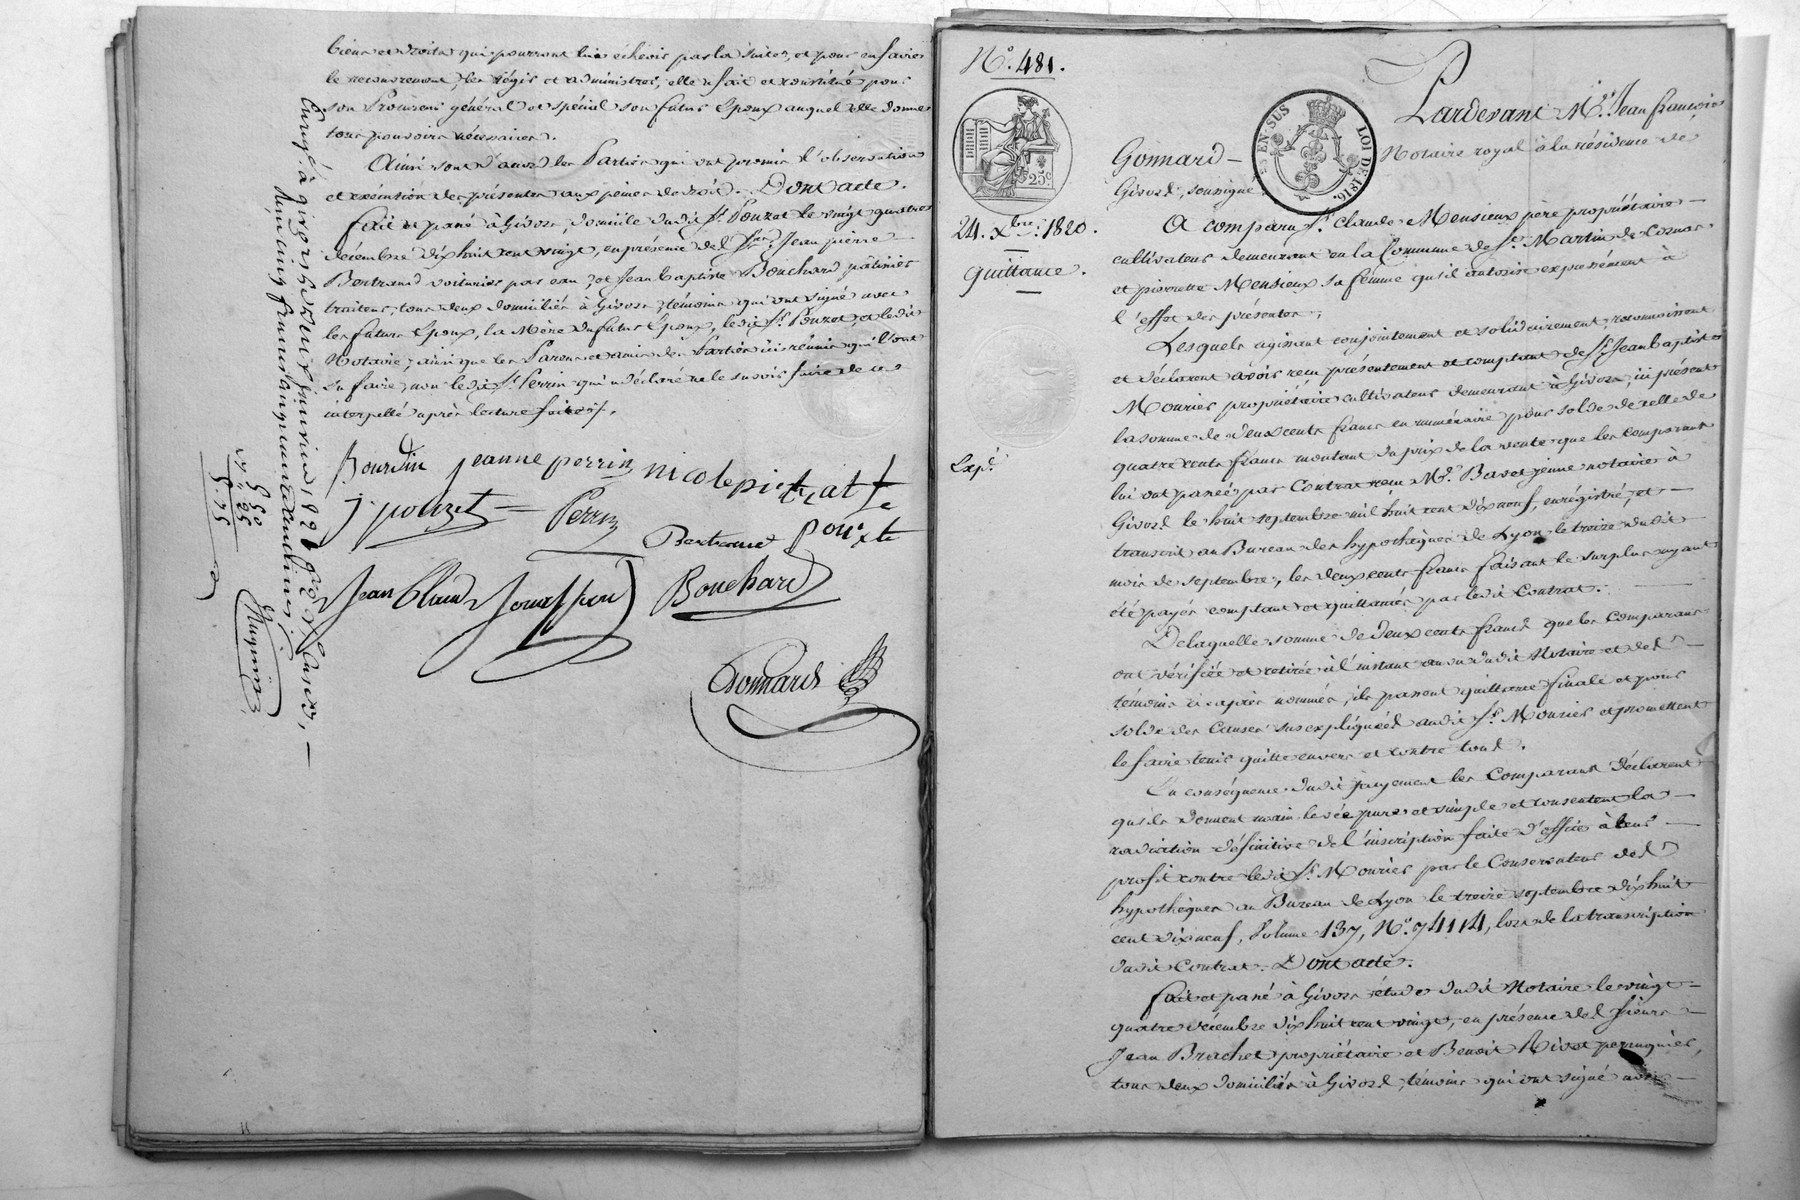 biens et droits qui pourront lui échoir par la suite, et pour en faire
le recouvrement, les régir et administrer, elle a fait et constitué pour
son Procureur général et spécial son futur Epoux auquel elle donne
tous pouvoirs nécessaires.
Ainsi sont d'accord les Parties qui ont promis l'observation
et exécution des présentes aux peines de droit. Dont acte.
Fait et passé à Givors, domicile dudit Sr. Pouzet le vingt quatre
décembre dix huit cent vingt, en présence de Srs. Jean pierre
Bertrand voiturier par eau, et Jean Baptiste Bouchard pâtissier
traiteur, tous deux domiciliés à Givors, témoins qui ont signé avec
les futurs Epoux, la Mère du futur Epoux, ledit Sr. Pouzet, et ledit
Notaire, ainsi que les Parens et amis des Parties ici réunis qui l'ont
su faire, non ledit Sr. Perrin qui a déclaré ne le savoir faire de ce
interpellé après lecture faite.
Bourdin jeanne perrin nicole
j. pouzet Perrin
Bertrand
Jean Claude Bouchard
Gonnard
N.º 481.
25c
EN SUS LOI DE 1816
24. Xbre. 1820.
Quittance.
Expé.
Pardevant Me. Jean françois
Gonnard – Notaire royal à la résidence de
Givors, soussigné
A comparu Sr. Claude Monsieux père propriétaire –
cultivateur demeurant en la Commune de St. Martin de Cornas
et pierrette Monsieux sa femme qu'il autorise expressément à
l'effet des présentes,
Lesquels agissant conjointement et solidairement, reconnaissent
et déclarent avoir reçu présentement et comptant de Sr. Jean Baptiste
Mourier propriétaire cultivateur demeurant à Givors, ici présent
la somme de deux cents francs en numéraire pour solde de celle de
quatre cents francs montant du prix de la vente que les comparans
lui ont passée par Contrat reçu Me. Bavet jeune notaire à
Givors le huit septembre mil huit cent dix neuf, enregistré, et –
transcrit au Bureau des hypothèques de Lyon le treize dudit
mois de septembre, les deux cents francs faisant le surplus ayant
été payés comptant et quittancés par ledit Contrat.
De laquelle somme de deux cents francs que les comparans
ont vérifiée et retirée à l'instant au vu dudit Notaire et des
témoins ci après nommés, ils passent quittance finale et pour
solde des Causes sus expliquées audit Sr. Mourier et promettent
le faire tenir quitte envers et contre tous.
En conséquence dudit payement les Comparans déclarent
qu'ils donnent main levée pure et simple et consentent la –
radiation définitive de l'inscription faite d'office à leur –
profit contre ledit Sr. Mourier par le Conservateur des
hypothèques au Bureau de Lyon le treize septembre dix huit
cent dix neuf, Volume 137, N.º 74114, lors de la transcription
dudit Contrat. Dont acte.
Fait et passé à Givors étude dudit Notaire le vingt –
quatre décembre dix huit cent vingt, en présence des Sieurs –
Jean Brachet propriétaire et Benoit Rivet perruquier,
tous deux domiciliés à Givors, témoins qui ont signé avec –